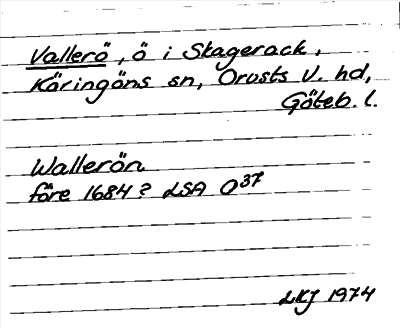 Vallerö, ö i Skagerack,
Käringöns sn, Orusts V. hd,
Göteb. l.
Wallerön
före 1684? LSA O37
LKJ 1974